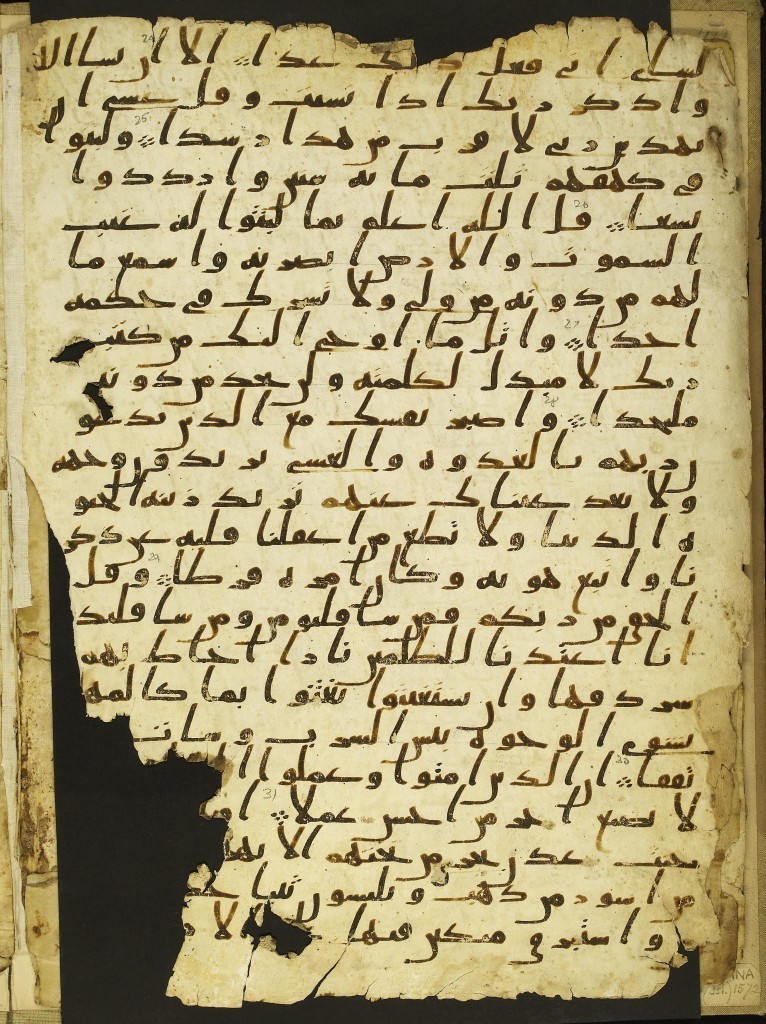 لشاي اني فعل ذلك غدا الا ان يشا الله
واذكر ربك اذا نسيت وقل عسى ان
يهدين ربي لاقرب من هذا رشدا ولبثوا
في كهفهم ثلث مائه سنين وازددوا
تسعا قل الله اعلم بما لبثوا له غيب
السموت والارض ابصر به واسمع ما
لهم من دونه من ولي ولا يشرك في حكمه
احدا واتل ما اوحي اليك من كتب
ربك لا مبدل لكلمته ولن تجد من دونه
ملتحدا واصبر نفسك مع الذين يدعو
ن ربهم بالغدوه والعشي يريدون وجهه
ولا تعد عيناك عنهم تريد زينه الحيو
ه الدنيا ولا تطع من اغفلنا قلبه عن ذكر
نا واتبع هويه وكان امره فرطا وقل
الحق من ربكم فمن شا فليومن ومن شا فليك
انا اعتدنا للظلمين نارا احاط بهم
سردقها وان يستغيثوا يغثوا بما كالمه
يشوي الوجوه بئس الشرب وسات
تفقا ان الذين امنوا وعملوا
لا نضيع اجر من احسن عملا
تحت عدن تجري من تحتهم الانه
من اسور من ذهب ويلبسون ثيابا
واستبرق متكين فيها